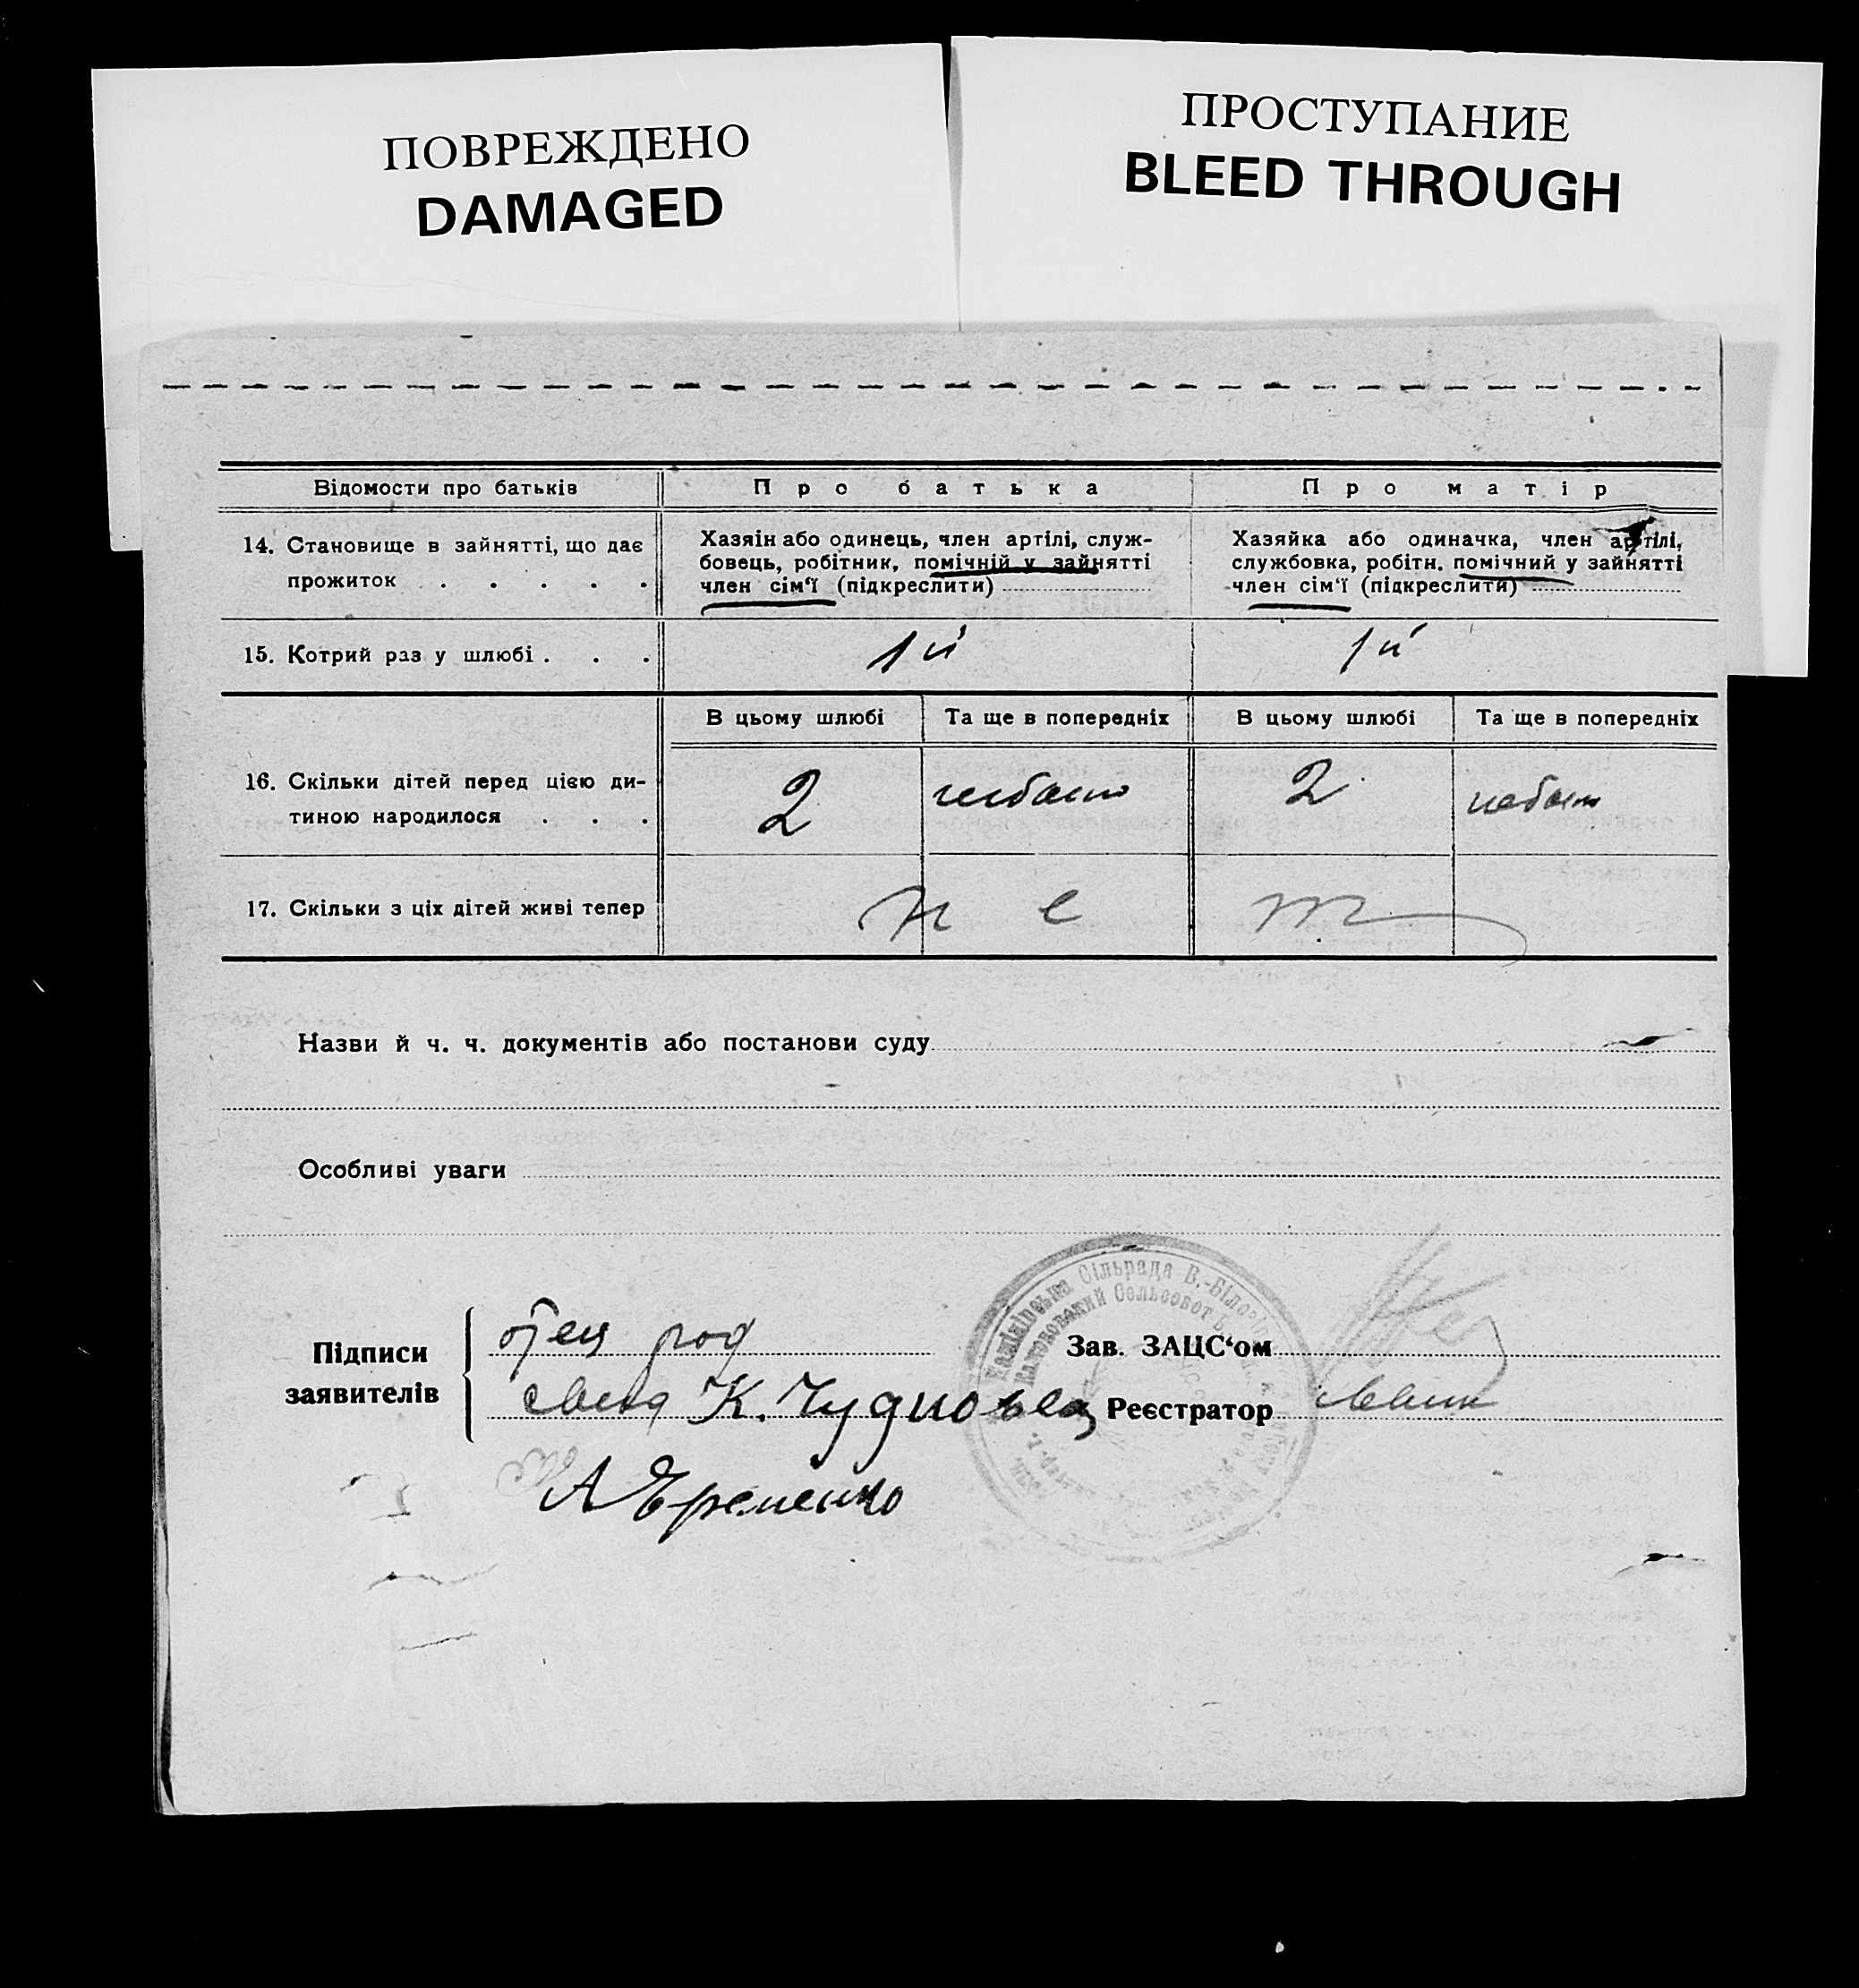 ПОВРЕЖДЕНО
DAMAGED
ПРОСТУПАНИЕ
BLEED THROUGH
Відомости про батьків
Про батька
Про матір
14. Становище в зайнятті, що дає
прожиток . . . . .
Хазяін або одинець, член артілі, служ-
бовець, робітник, помічній у зайнятті
член сім‘ї (підкреслити)
Хазяйка або одиначка, член артілі,
службовка, робітн. помічний у зайнятті
член сім‘ї (підкреслити)
15. Котрий раз у шлюбі . . .
1й
1й
В цьому шлюбі
Та ще в попередніх
В цьому шлюбі
Та ще в попередніх
16. Скільки дітей перед цією ди-
тиною народилося . . .
2
2
17. Скільки з ціх дітей живі тепер
нет
Назви й ч. ч. документів або постанови суду
Особливі уваги
Підписи
заявителів
отец
К. Чудновец
А Єременко
Сільрада В.-Біло
Сельсовет
Зав. ЗАЦС‘ом
Реєстратор